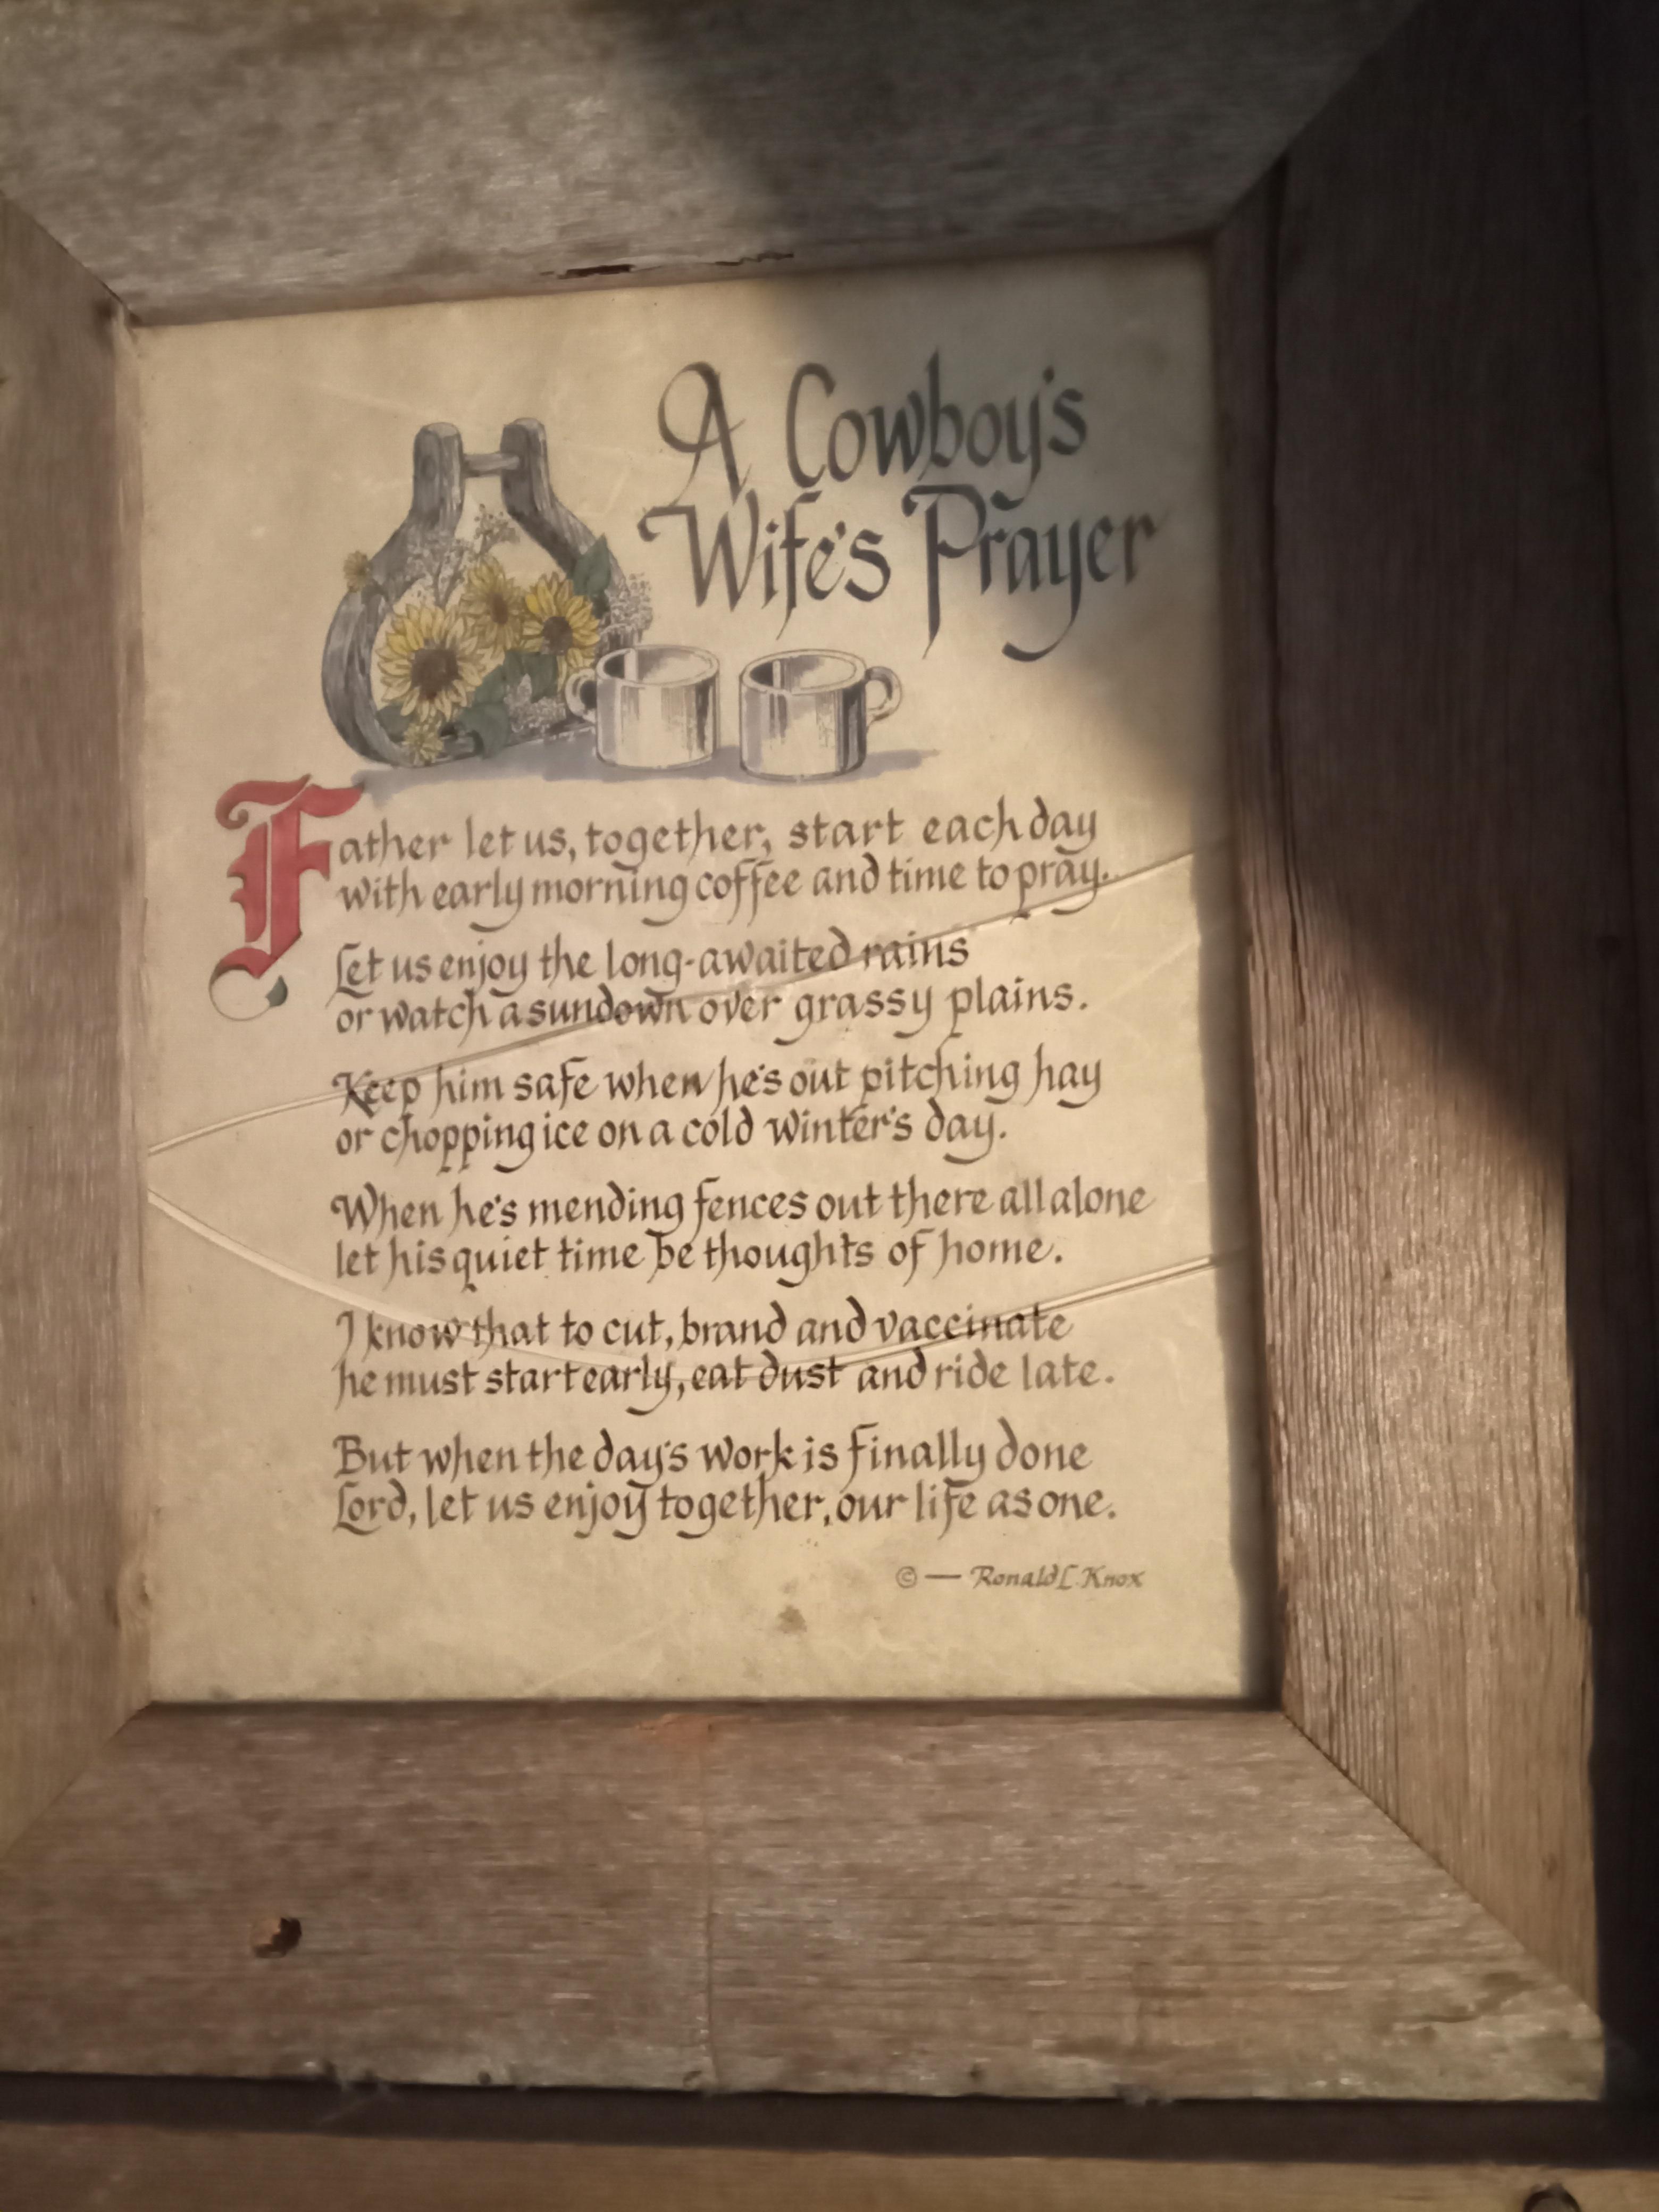 A Cowboy's
Wife's Prayer
Father let us, together, start each day
with early morning coffee and time to pray.
Let us enjoy the long-awaited rains
or watch a sundown over grassy plains.
Keep him safe when he's out pitching hay
or chopping ice on a cold winter's day.
When he's mending fences out there all alone
let his quiet time be thoughts of home.
I know that to cut, brand and vaccinate
he must start early, eat dust and ride late.
But when the day's work is finally done
Lord, let us enjoy together, our life as one.
© — Ronald L. Knox